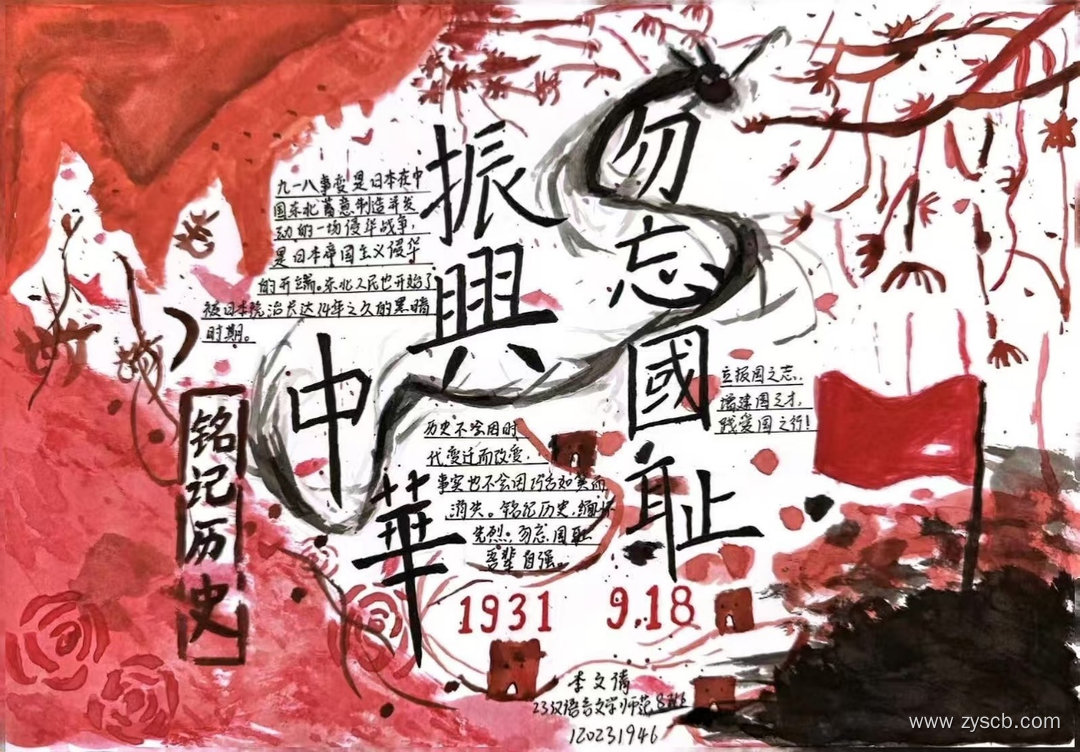 勿忘國耻
振興
中華
九一八事变是日本在中
国东北蓄意制造并发
动的一场侵华战争，
是日本帝国主义侵华
的开端。东北人民也开始了
被日本统治长达14年之久的黑暗
时期。
铭记历史
历史不会因时
代变迁而改变，
事实也不会因巧舌如簧而
消失。铭记历史，缅怀
先烈；勿忘国耻
吾辈自强。
立报国之志，
增建国之才，
践爱国之行！
1931 9.18
李文倩
23汉语言文学师范
120231946
www.zyscb.com